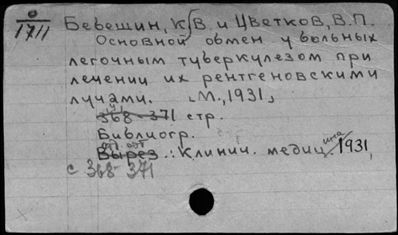 О
1711
Берешин, К.В. и Цветков, В.П.
Основной обмен у больных
легочным туберкулезом при
лечении их рентгеновскими
лучами. М., 1931,
368-371 стр.
Библиогр.
Вырез.: Клинич. медицина 1931,
с 368-371